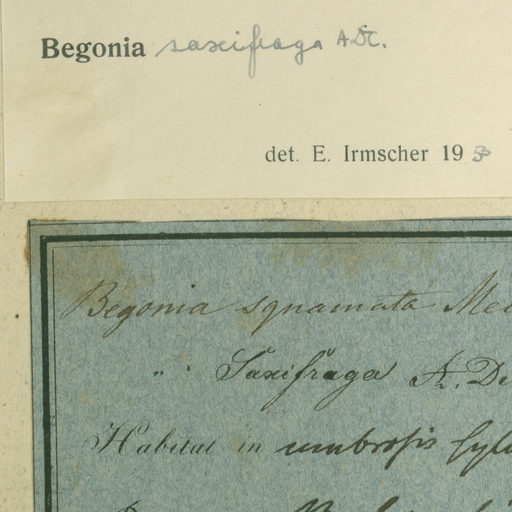 Begonia saxifraga A.DC.
det. E. Irmscher 19 30
Begonia squamata
" Saxifraga A. De
Habitat in umbrosis sylv